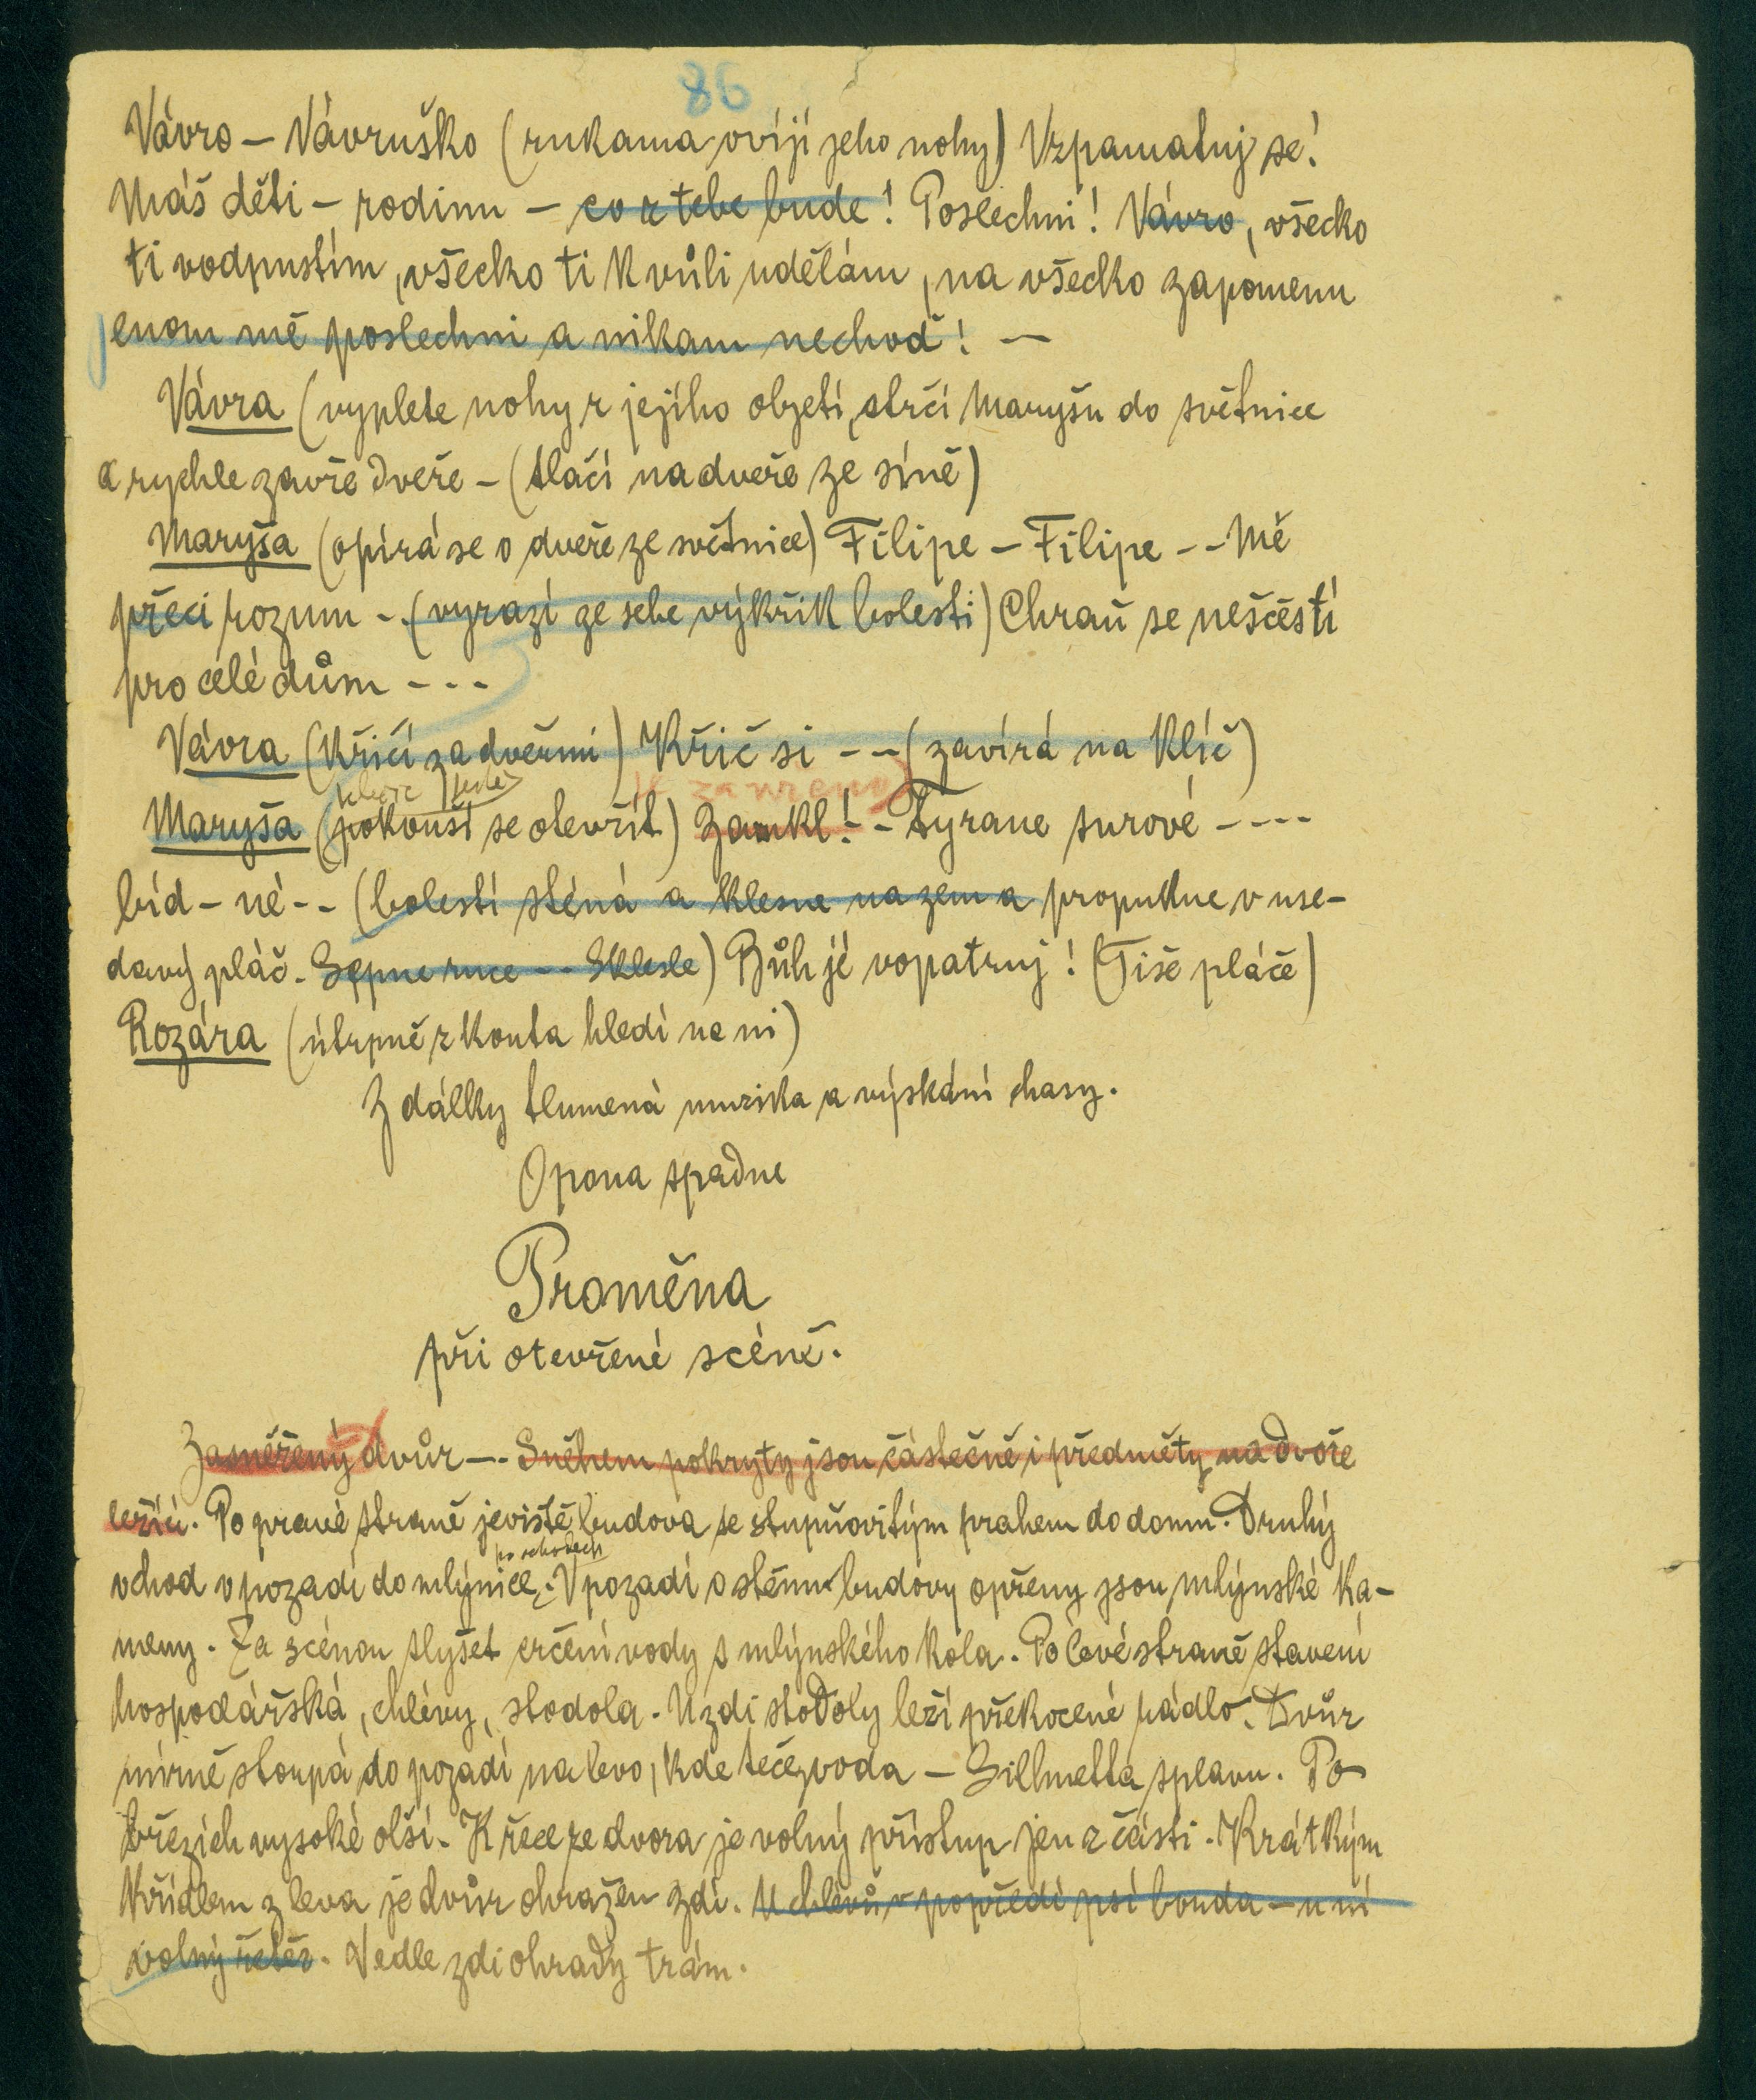 86
Vávro – Vávruško (rukama ovíjí jeho nohy) Vzpamatuj se!
Máš děti – rodinu – co z tebe bude! Poslechni! Vávro, všecko
ti vodpustím, všecko ti k vůli udělám, na všecko zapomenu
jenom mě poslechni a nikam nechoď! —
Vávra (vyplete nohy z jejího objetí, strčí Maryšu do světnice
a rychle zavře dveře – (tlačí na dveře ze síně)
Maryša (opírá se o dveře ze světnice) Filipe – Filipe - - Mě
přeci rozum - . (vyrazí ze sebe výkřik bolesti) Chraň se neščěstí
pro celé dům - - -
Vávra (křičí za dveřmi) Křič si - - - (zavírá na klíč)
je zavřeno
Maryša (pokouší se otevřít) Zamkl! - - Tyrane surové - - - -
bíd - né - - (bolestí sténá a klesne na zem a propukne v use-
davý pláč. Sepne ruce - - - Sklesle) Bůh jě vopatruj! (Tiše pláče)
Rozára (útrpně z kouta hledí na ni)
Z dálky tlumená muzika a výskání chasy.
Opona spadne
Proměna
při otevřené scéně.
Zasněžený dvůr — . Sněhem pokryty jsou částečně i předměty na dvoře
ležící. Po pravé straně jeviště budova se stupňovitým prahem do domu. Druhý
po schodech
vchod v pozadí do mlýnice. V pozadí o stěnu budovy opřeny jsou mlýnské ka-
meny. Za scénou slyšet crčení vody s mlýnského kola. Po levé straně stavení
hospodářská, chlévy, stodola. U zdi stodoly leží překocené pádlo. Dvůr
mírně stoupá do pozadí na levo, kde teče voda – Silhuetta splavu. Po
březích vysoké olší. K řece ze dvora je volný přístup jen z části. Krátkým
křídlem z leva je dvůr ohražen zdí. U chlévů v popředí psí bouda – u ní
volný řetěz. Vedle zdi ohrady trám.